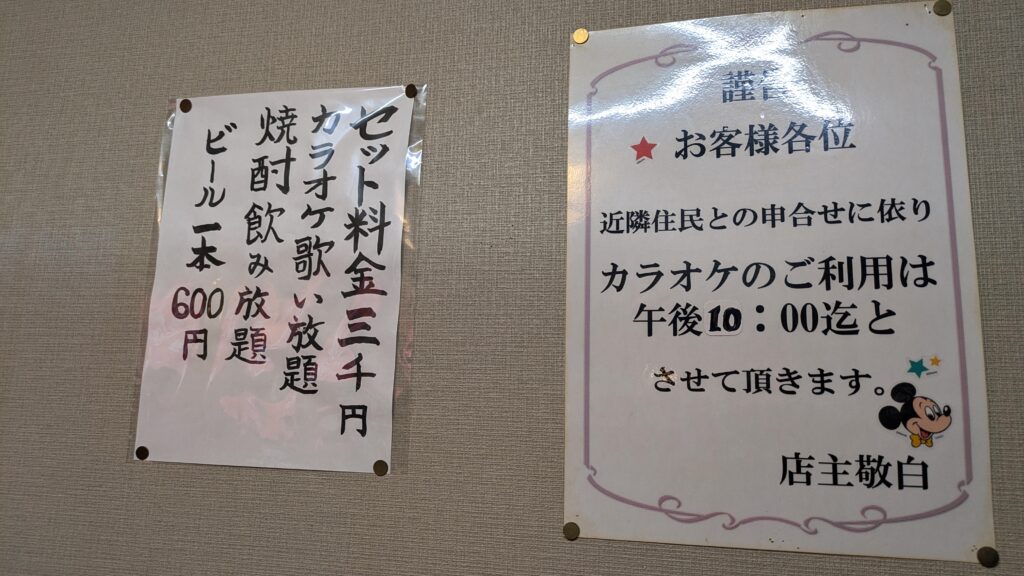 セット料金三千円
カラオケ歌い放題
焼酎飲み放題
ビール一本600円
謹告
お客様各位
近隣住民との申合せに依り
カラオケのご利用は
午後10：00迄と
させて頂きます。
店主敬白